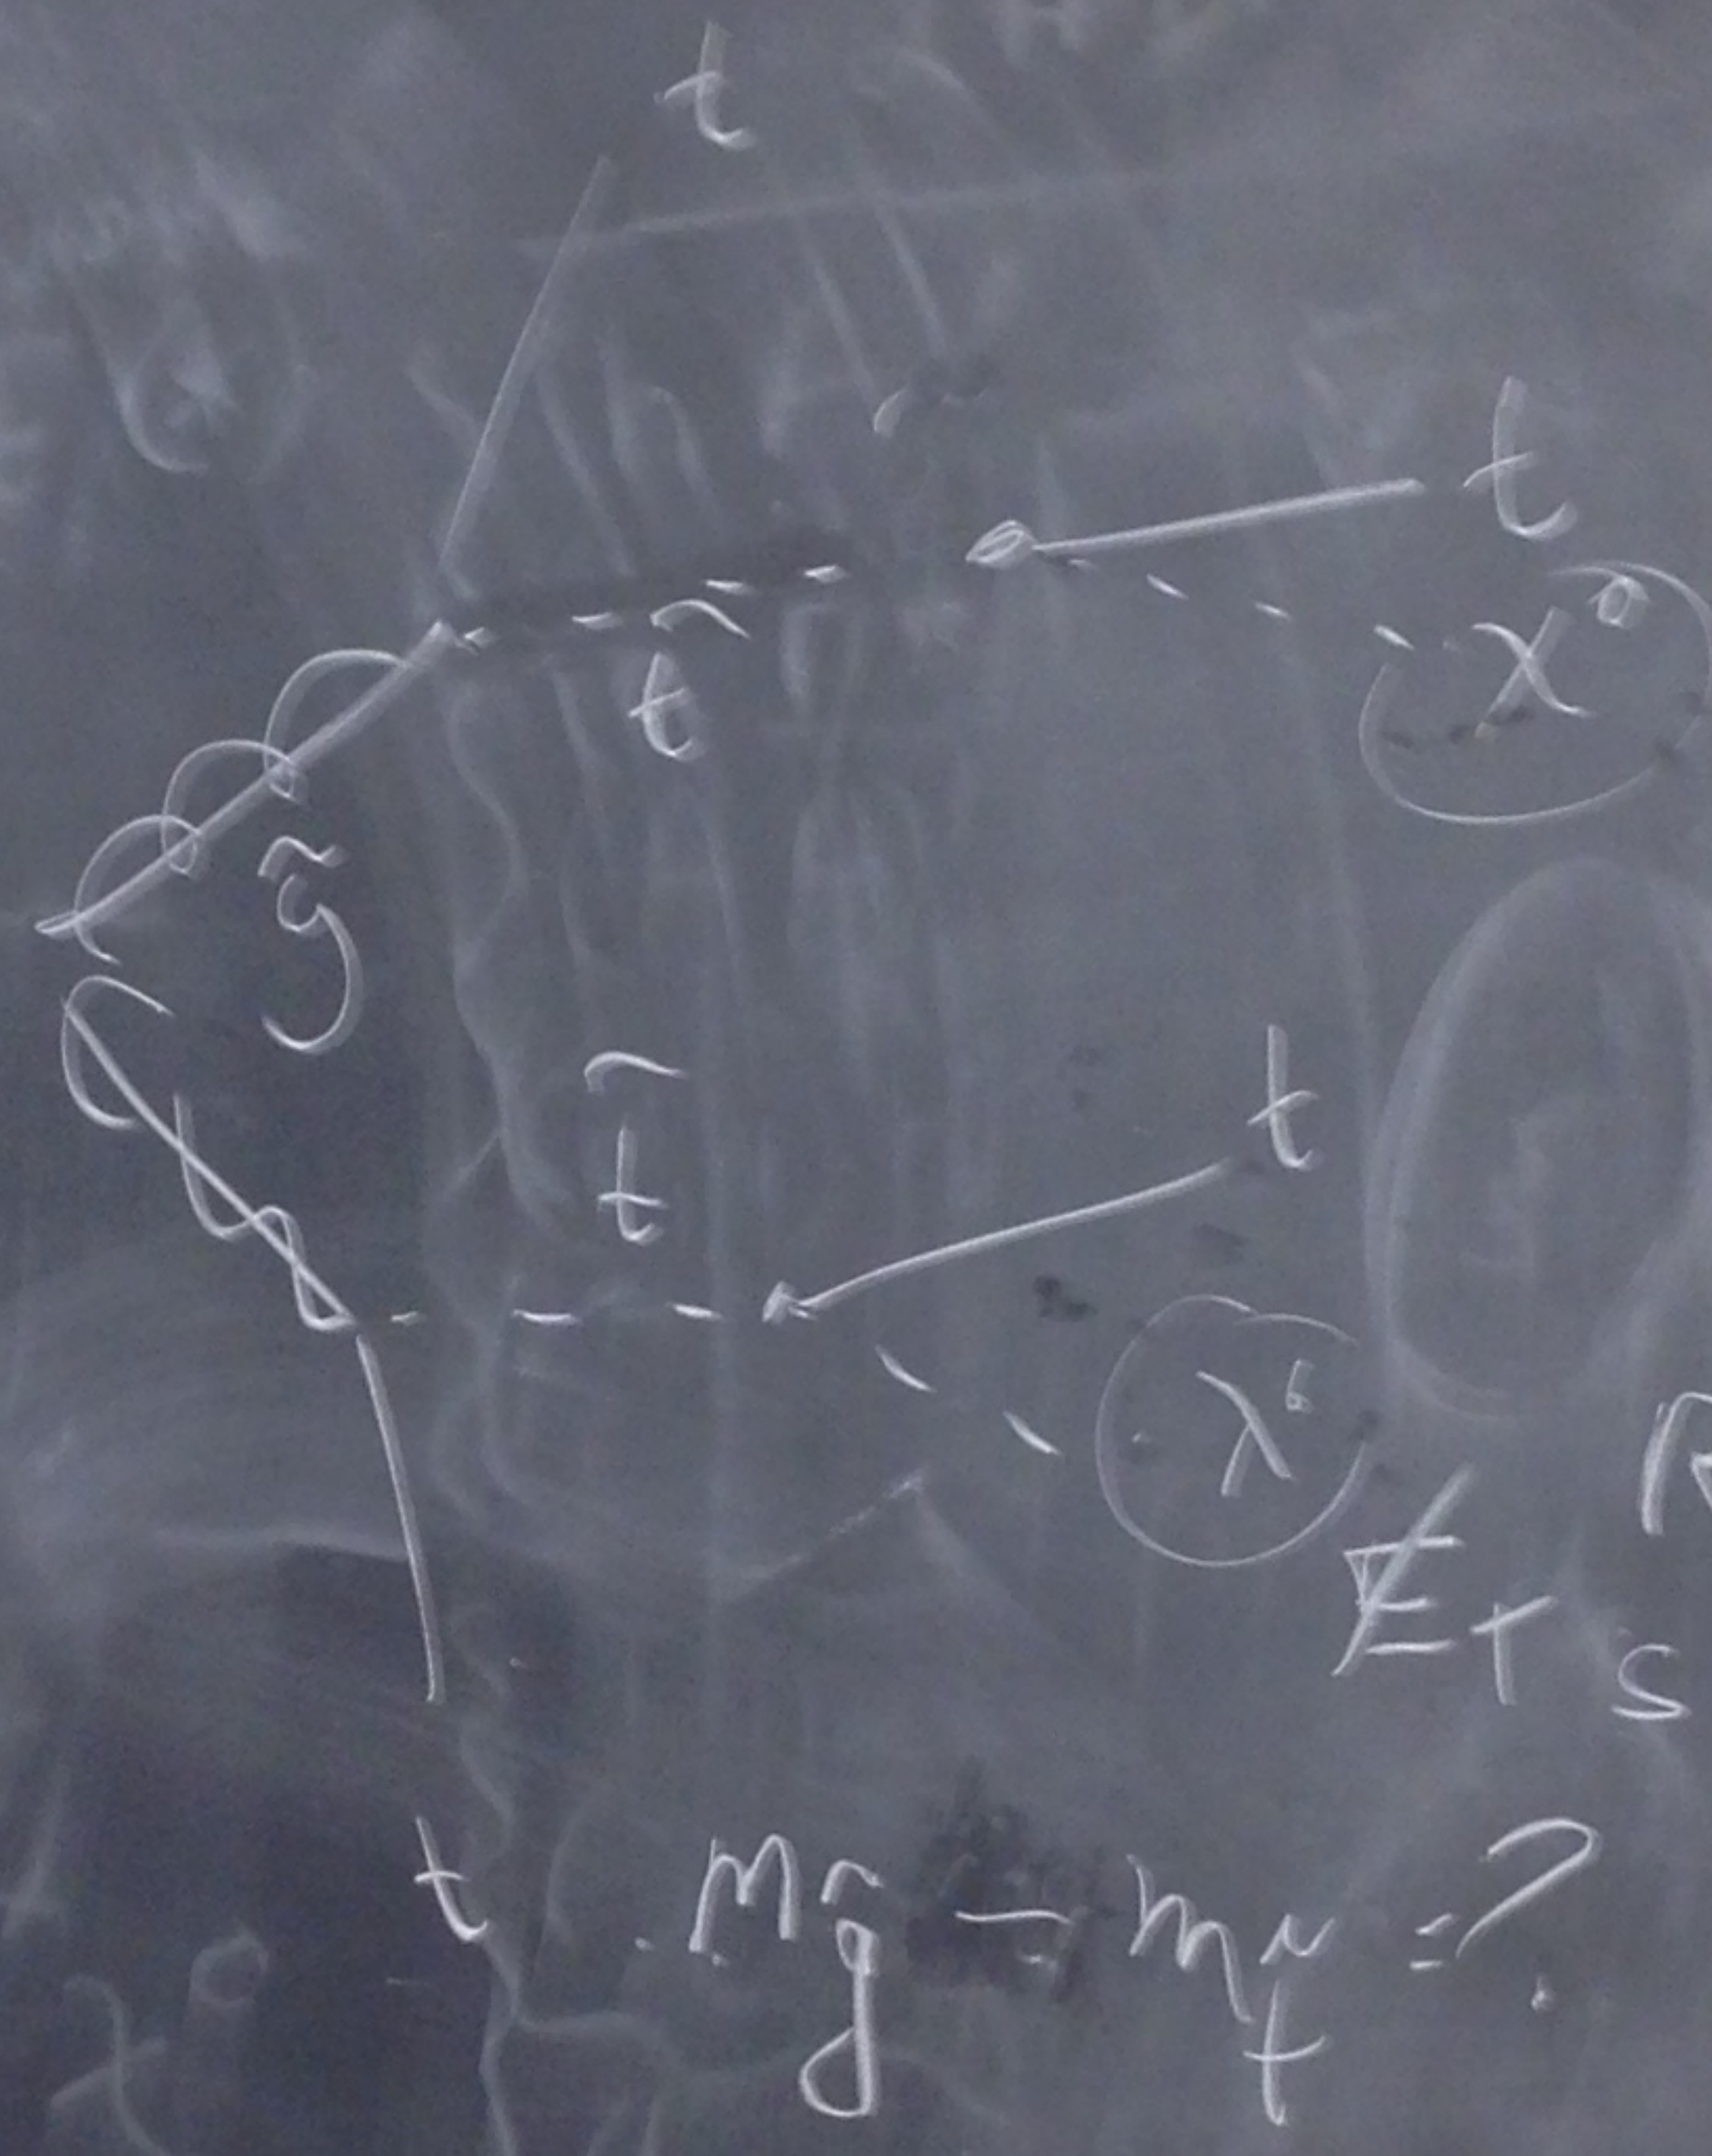 t
t
t̃
χ⁰
g̃
t̃
t
χ⁰
E̸_T
S
t
m_g̃ − m_t̃ = ?